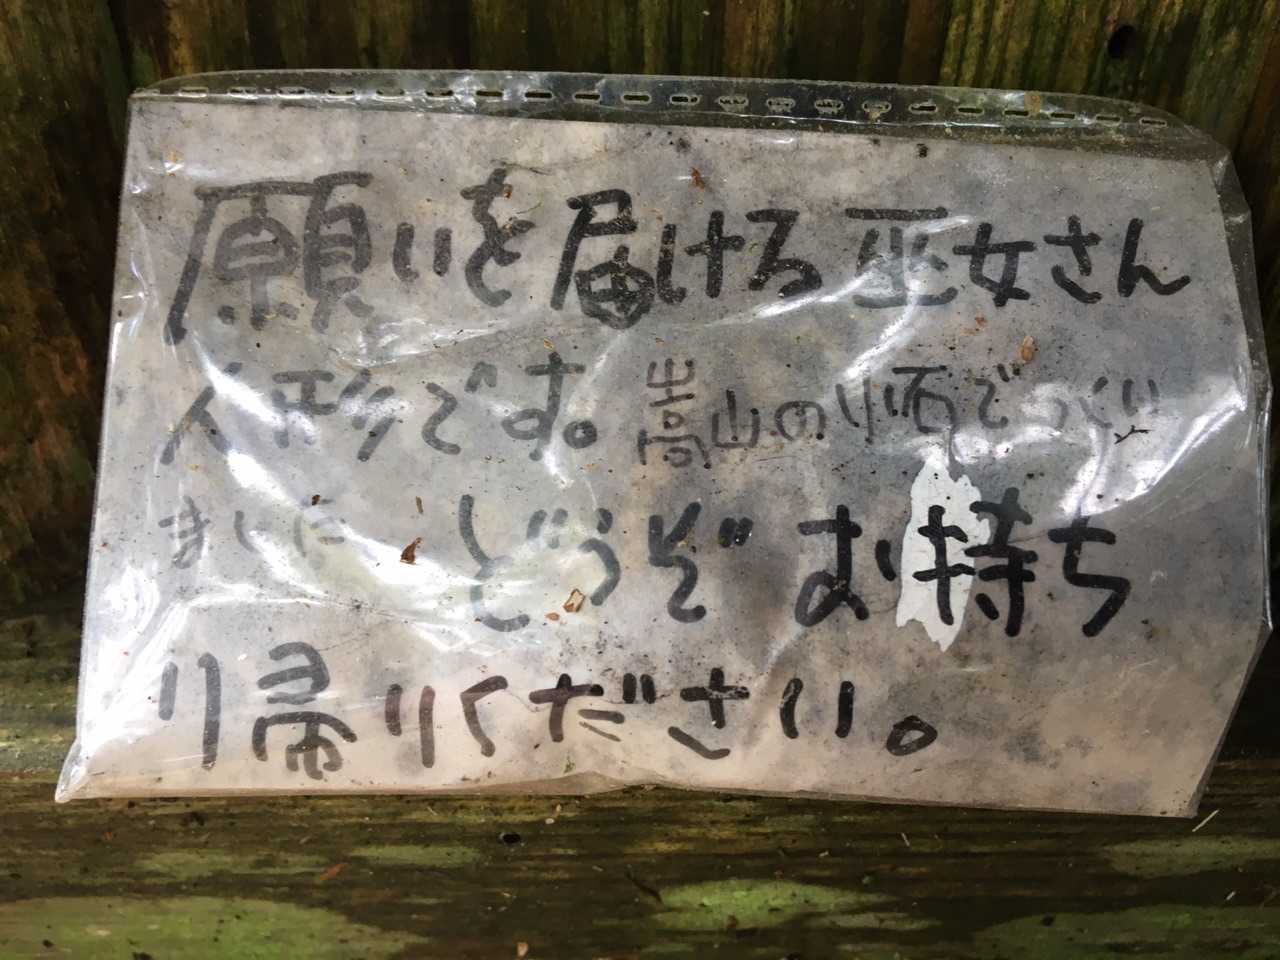 願いを届ける巫女さん
人形です。嵩山の小石でつくり
ました どうぞ お持ち
り帰りください。